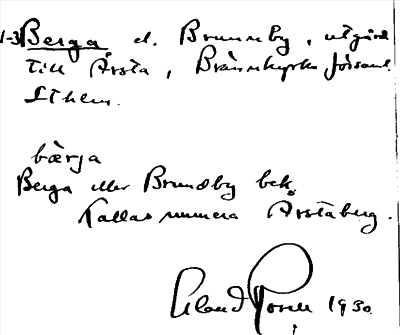 1-3 Berga el. Brunnby, utgård
till Årsta, Brännkyrka församl.
Sthlm.
bærja
Berga eller Brundby bek.
Kallas numera Årstaberg.
Erland Rosell 1930